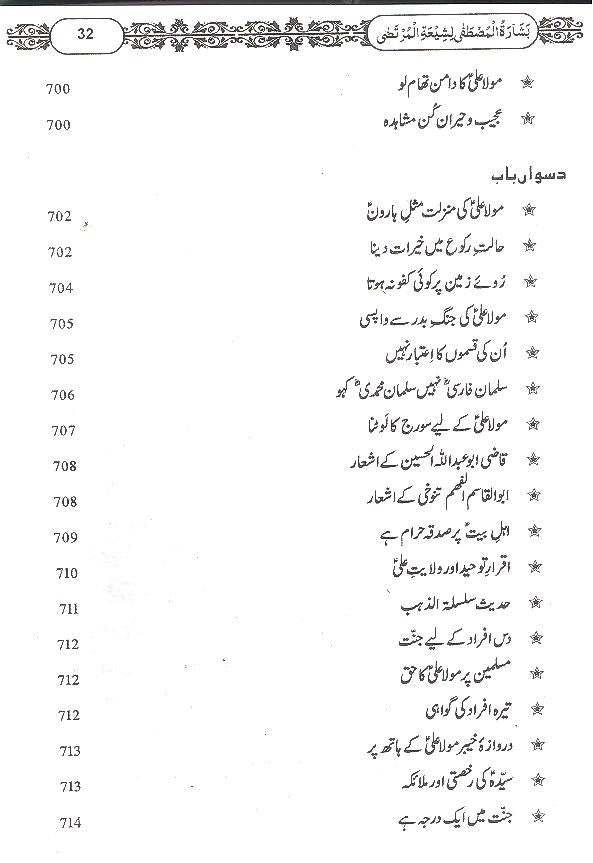 بَشَارَةُ الْمُصْطَفٰی لِشِیْعَةِ الْمُرْتَضٰی 32
مولا علیؑ کا دامن تھام لو 700
عجیب و حیران کُن مشاہدہ 700
دسواں باب
مولا علیؑ کی منزلت مثلِ ہارونؑ 702
حالتِ رکوع میں خیرات دینا 702
رُوئے زمین پر کوئی کفو نہ ہوتا 704
مولا علیؑ کی جنگِ بدر سے واپسی 705
اُن کی قسموں کا اعتبار نہیں 705
سلمان فارسیؓ نہیں سلمان محمدیؓ کہو 706
مولا علیؑ کے لیے سورج کا لَوٹنا 707
قاضی ابوعبداللہ الحسین کے اشعار 708
ابوالقاسم الفہم تنوخی کے اشعار 708
اہلِ بیتؑ پر صدقہ حرام ہے 709
اقرارِ توحید اور ولایتِ علیؑ 710
حدیث سلسلۃ الذہب 711
دس افراد کے لیے جنّت 712
مسلمین پر مولا علیؑ کا حق 712
تیرہ افراد کی گواہی 712
دروازۂ خیبر مولا علیؑ کے ہاتھ پر 713
سیّدہؑ کی رخصتی اور ملائکہ 713
جنّت میں ایک درجہ ہے 714